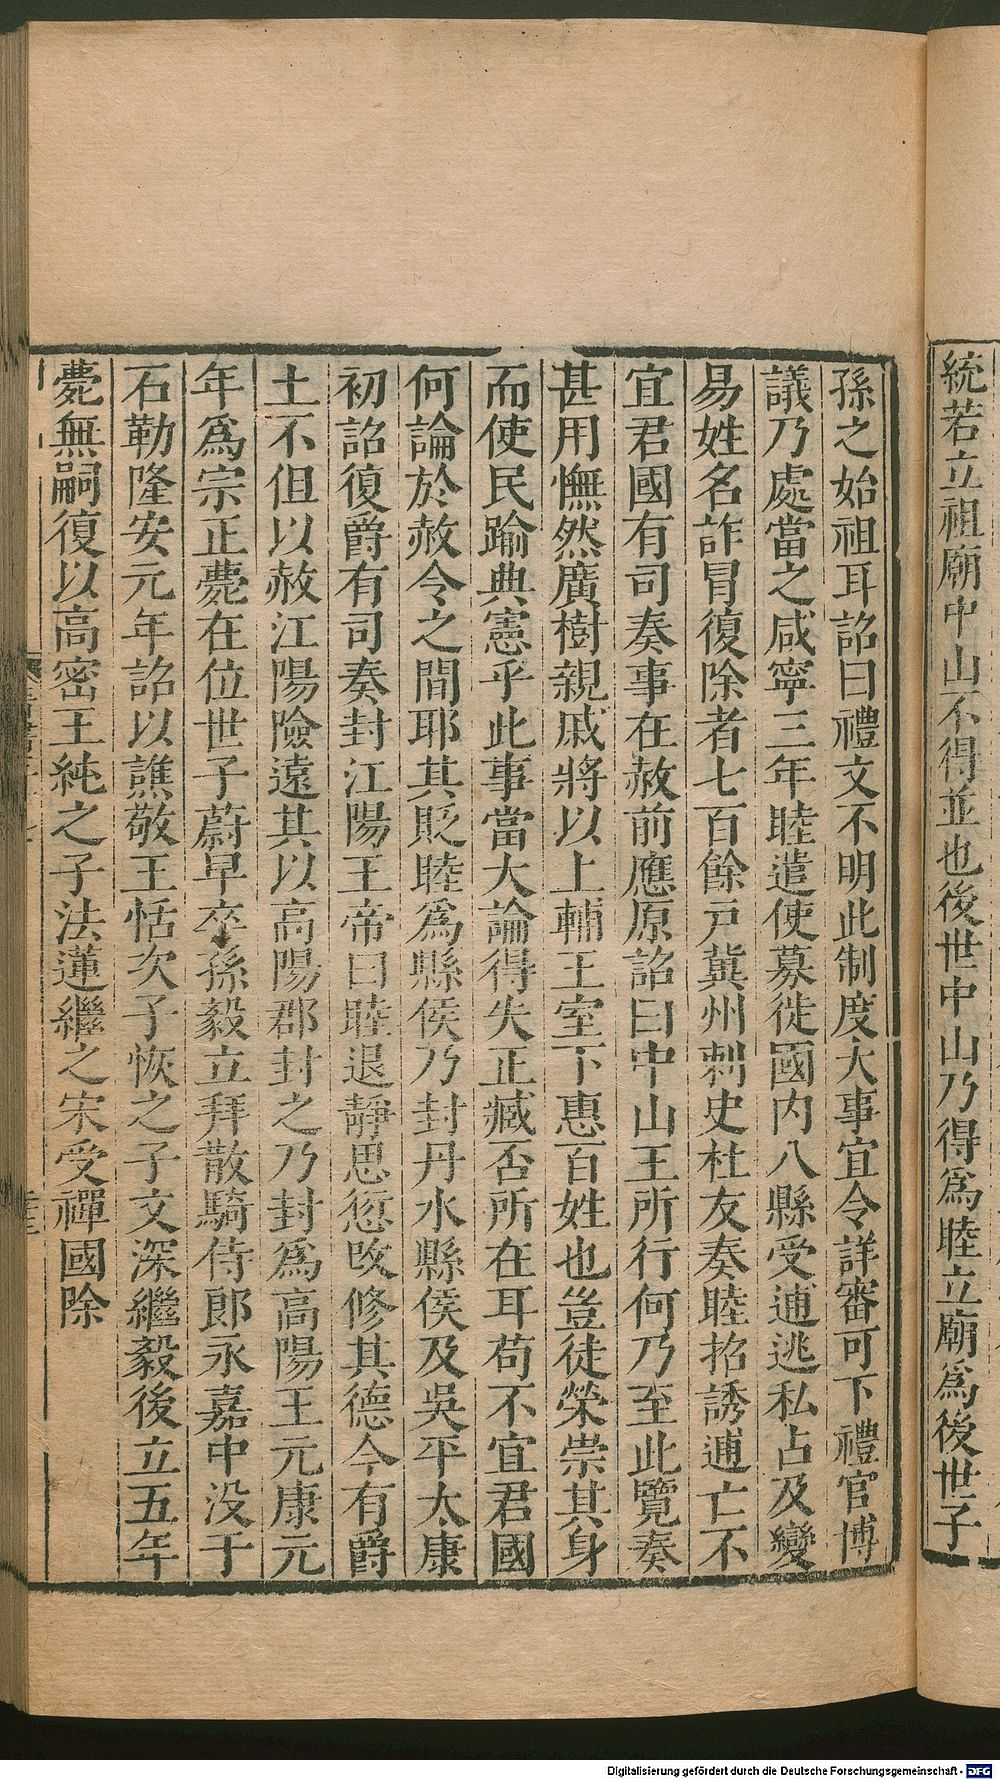 統若立祖廟中山不得並也後世中山乃得爲睦立廟爲後世子
孫之始祖耳詔曰禮文不明此制度大事宜令詳審可下禮官博
議乃處當之咸寧三年睦遣使募徙國內八縣受逋逃私占及變
易姓名詐冒復除者七百餘戸冀州刺史杜友奏睦招誘逋亡不
宜君國有司奏事在赦前應原詔曰中山王所行何乃至此覽奏
甚用憮然廣樹親戚將以上輔王室下惠百姓也豈徒榮崇其身
而使民踰典憲乎此事當大論得失正臧否所在耳苟不宜君國
何論於赦令之間耶其貶睦爲縣侯乃封丹水縣侯及吳平太康
初詔復爵有司奏封江陽王帝曰睦退靜思愆攺修其德今有爵
土不但以赦江陽險遠其以高陽郡封之乃封爲高陽王元康元
年爲宗正薨在位世子蔚早卒孫毅立拜散騎侍郎永嘉中没于
石勒隆安元年詔以譙敬王恬次子恢之子文深繼毅後立五年
薨無嗣復以高密王純之子法蓮繼之宋受禪國除
Digitalisierung gefördert durch die Deutsche Forschungsgemeinschaft - DFG